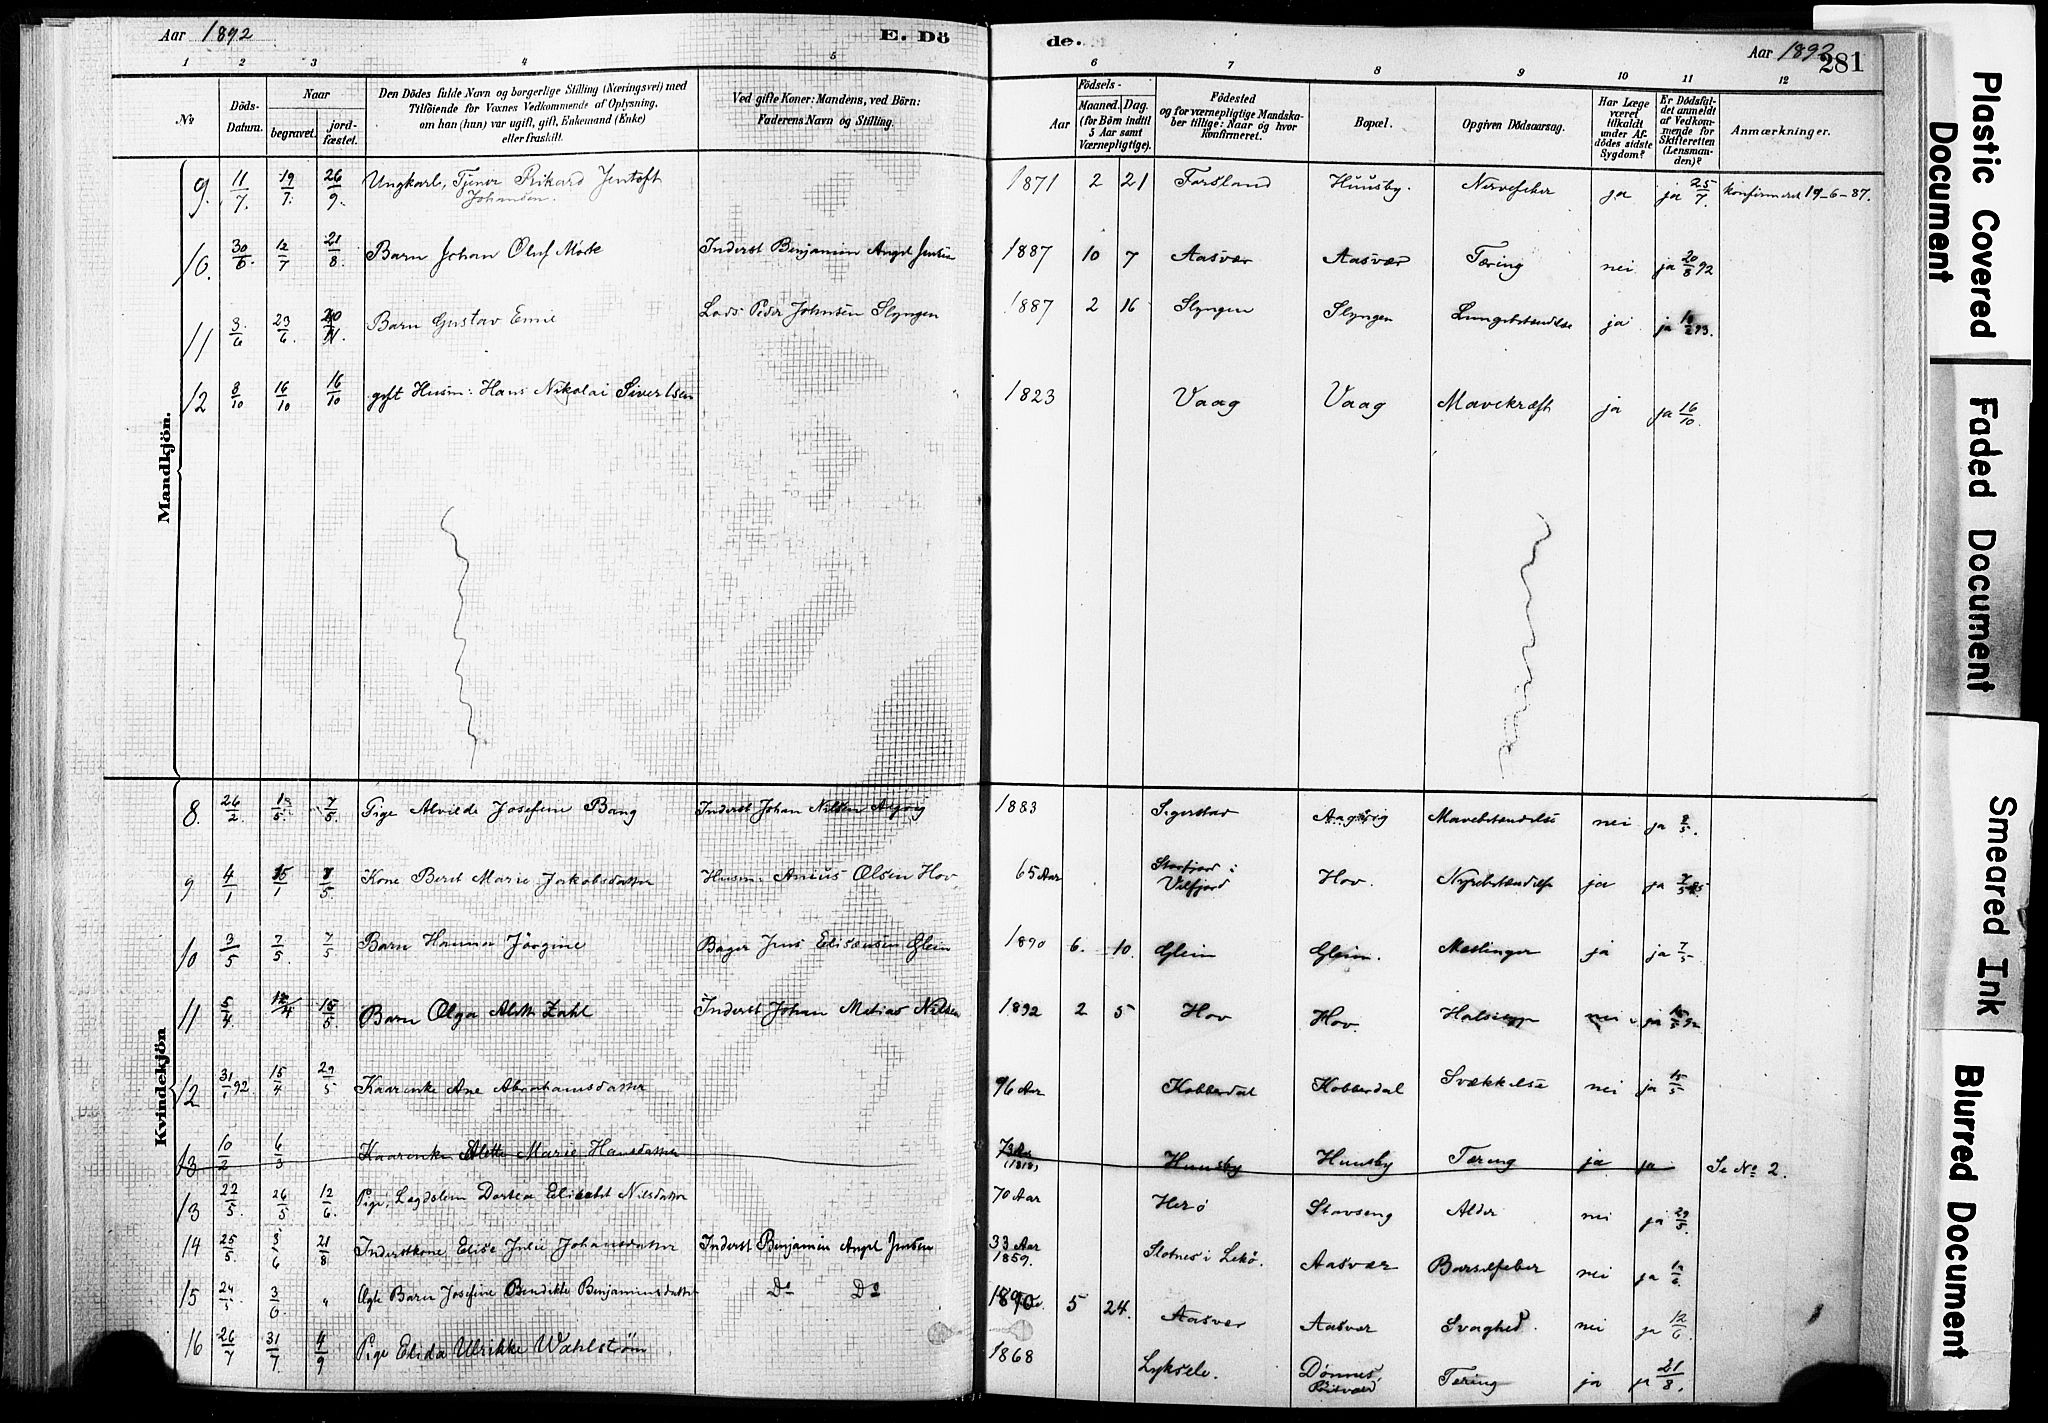 Aar 1892
E. Dö
de.
Aar 1892
281
1 2 3 4 5 6 7 8 9 10 11 12
No
Döds-Datum.
Naar
begravet.
jord-fæstet.
Den Dödes fulde Navn og borgerlige Stilling (Næringsvei) med
Tilföiende for Voxnes Vedkommende af Oplysning,
om han (hun) var ugift, gift, Enkemand (Enke)
eller fraskilt.
Ved gifte Koner: Mandens, ved Börn:
Faderens Navn og Stilling.
Aar
Födsels-
Maaned. Dag.
(for Börn indtil
5 Aar samt
Værnepligtige).
Födested
og for værnepligtige Mandska-
ber tillige: Naar og hvor
konfirmeret.
Bopæl.
Opgiven Dödsaarsag.
Har Læge
været
tilkaldt
under Af-
dödes sidste
Sygdom?
Er Dödsfal-
det anmeldt
af Vedkom-
mende for
Skifteretten
(Lensman-
den)?
Anmærkninger.
Mandkjön.
9. 11/7. 19/7. 26/9. Ungkarl, Tjener Rikard Jentoft Johansen. 1871 2 21 Forsland Huusby. Nervefeber ja ja 25/7 konfirmeret 19-6-87.
10. 30/6. 12/7 21/8. Barn Johan Oluf Mørk Inderst Benjamin Angel Jensen 1887 10 7 Aasvær Aasvær Tæring nei ja 20/8 92
11 3/6 23/6. Barn Gustav Emil Lods Peder Johnsen Slyngen 1887 2 16 Slyngen Slyngen Lungebetændelse ja ja
12 8/10 16/10 16/10 gift Husm: Hans Nikolai Sivertsen 1823 Vaag Vaag Mavekræft ja ja 16/10
Kvindekjön
8. 26/2. 7/5. Pige Alvilde Josefine Bang Inderst Johan Nilsen Aagvig 1883 Sigerstad Aagvig Mavebetændelse nei ja
9 4/1 15/1 7/5. Kone Beret Marie Jakobsdatter Husm: Anius Olsen Hov 65 Aar Storfjord i Velfjord Hov. Nyrebetændelse ja ja
10 3/5 7/5. 7/5. Barn Hanna Jörgine Bager Jens Elisæusen Glein 1890 6. 10. Glein Glein. Meslinger ja ja 7/5.
11 5/4. 15/5. Barn Olga Alette Zahl Inderst Johan Matias Nilsen 1892 2 5 Hov Hov. Halssyge nei ja
12 31/1 92. 15/4 29/5 Kaarenke Ane Abrahamsdatter 96 Aar Kobberdal Kobberdal Svækkelse nei ja
13 10/2 6/3 Kaarenke Alette Marie Hansdatter 73 Aar (1818) Huusby Huusby Tæring ja ja Se No 2.
13 22/5. 26/5 12/6. Pige, Lægdslem Dortea Elisabet Nilsdatter 70 Aar Herø Stavseng Alder nei ja 29/5.
14 25/5. 3/6 21/8 Inderstkone Elise Julie Johansdatter Inderst Benjamin Angel Jensen 33 Aar 1859. Slotnes i Lekø. Aasvær Barselfeber nei ja
15 24/5 3/6 " Ægte Barn Josefine Bendikte Benjaminsdatter Do Do 1890 5 24. Aasvær Aasvær Svaghed. nei ja 12/6.
16 26/7 31/7. 4/9 Pige Elida Ulrikke Wahlstrøm 1868 Lyksele. Dønnes, Tæring ja ja 21/8.
Plastic Covered Document
Faded Document
Smeared Ink
Blurred Document